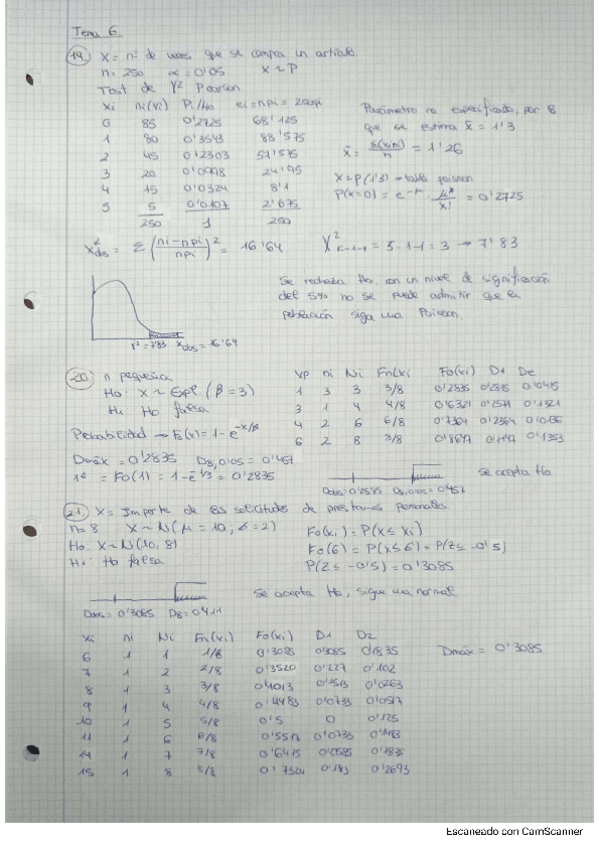 Tema 6
19. X = nº de veces que se compra un artículo.
n = 250 α = 0'05 X ~ P
Test de χ² Pearson
xi ni(xi) Pi/Ho ei = npi = 250pi
0 85 0'2725 68'125
1 80 0'3543 88'575
2 45 0'2303 57'575
3 20 0'0998 24'95
4 15 0'0324 8'1
5 5 0'0107 2'675
250 1 250
Parámetro no especificado, por
que se estima x̄ = 1'3
x̄ = Σ(xini)/n = 1'26
X ~ P(1'3) → tabla poisson
P(X=0) = e^-μ · μ^x/x! = 0'2725
X²obs = Σ (ni - npi/npi)² = 16'64 X²k-1-1 = 5-1-1 = 3 → 7'83
Se rechaza Ho, con un nivel de significación
del 5% no se puede admitir que la
población siga una Poisson.
χ² = 7'83 Xobs = 16'64
20. n pequeña
Ho: X ~ Exp. (β = 3)
H1: Ho falsa
Probabilidad → Fo(x) = 1 - e^-x/β
xp ni Ni Fn(xi Fo(xi) D1 D2
1 3 3 3/8 0'2835 0'2835 0'0915
3 1 4 4/8 0'6321 0'2571 0'1321
4 2 6 6/8 0'7364 0'2364 0'0136
6 2 8 8/8 0'8647 0'1147 0'1353
Dmáx = 0'2835 D8,0'05 = 0'457
1º = Fo(1) = 1 - e^-1/3 = 0'2835
Se acepta Ho
Dobs = 0'2835 D8,0'05 = 0'457
21. X = Importe de 8 solicitudes de prestamos personales.
n = 8 X ~ N(μ = 10, σ = 2)
Ho: X ~ N(10, 8)
H1: Ho falsa
Fo(xi) = P(X ≤ xi)
Fo(6) = P(X ≤ 6) = P(Z ≤ -0'5)
P(Z ≤ -0'5) = 0'3085
Se acepta Ho, sigue una normal.
Dobs = 0'3085 D8 = 0'411
xi ni Ni Fn(xi) Fo(xi) D1 D2
6 1 1 1/8 0'3085 0'3085 0'1835
7 1 2 2/8 0'3520 0'227 0'102
8 1 3 3/8 0'4013 0'1513 0'0263
9 1 4 4/8 0'4483 0'0733 0'0517
10 1 5 5/8 0'5 0 0'125
11 1 6 6/8 0'5517 0'0733 0'1983
14 1 7 7/8 0'6915 0'0585 0'1835
15 1 8 8/8 0'7324 0'2693
Dmáx = 0'3085
Escaneado con CamScanner